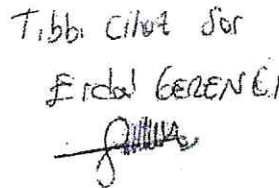 Tıbbi Cihaz Sor
Erdal GERENCİ